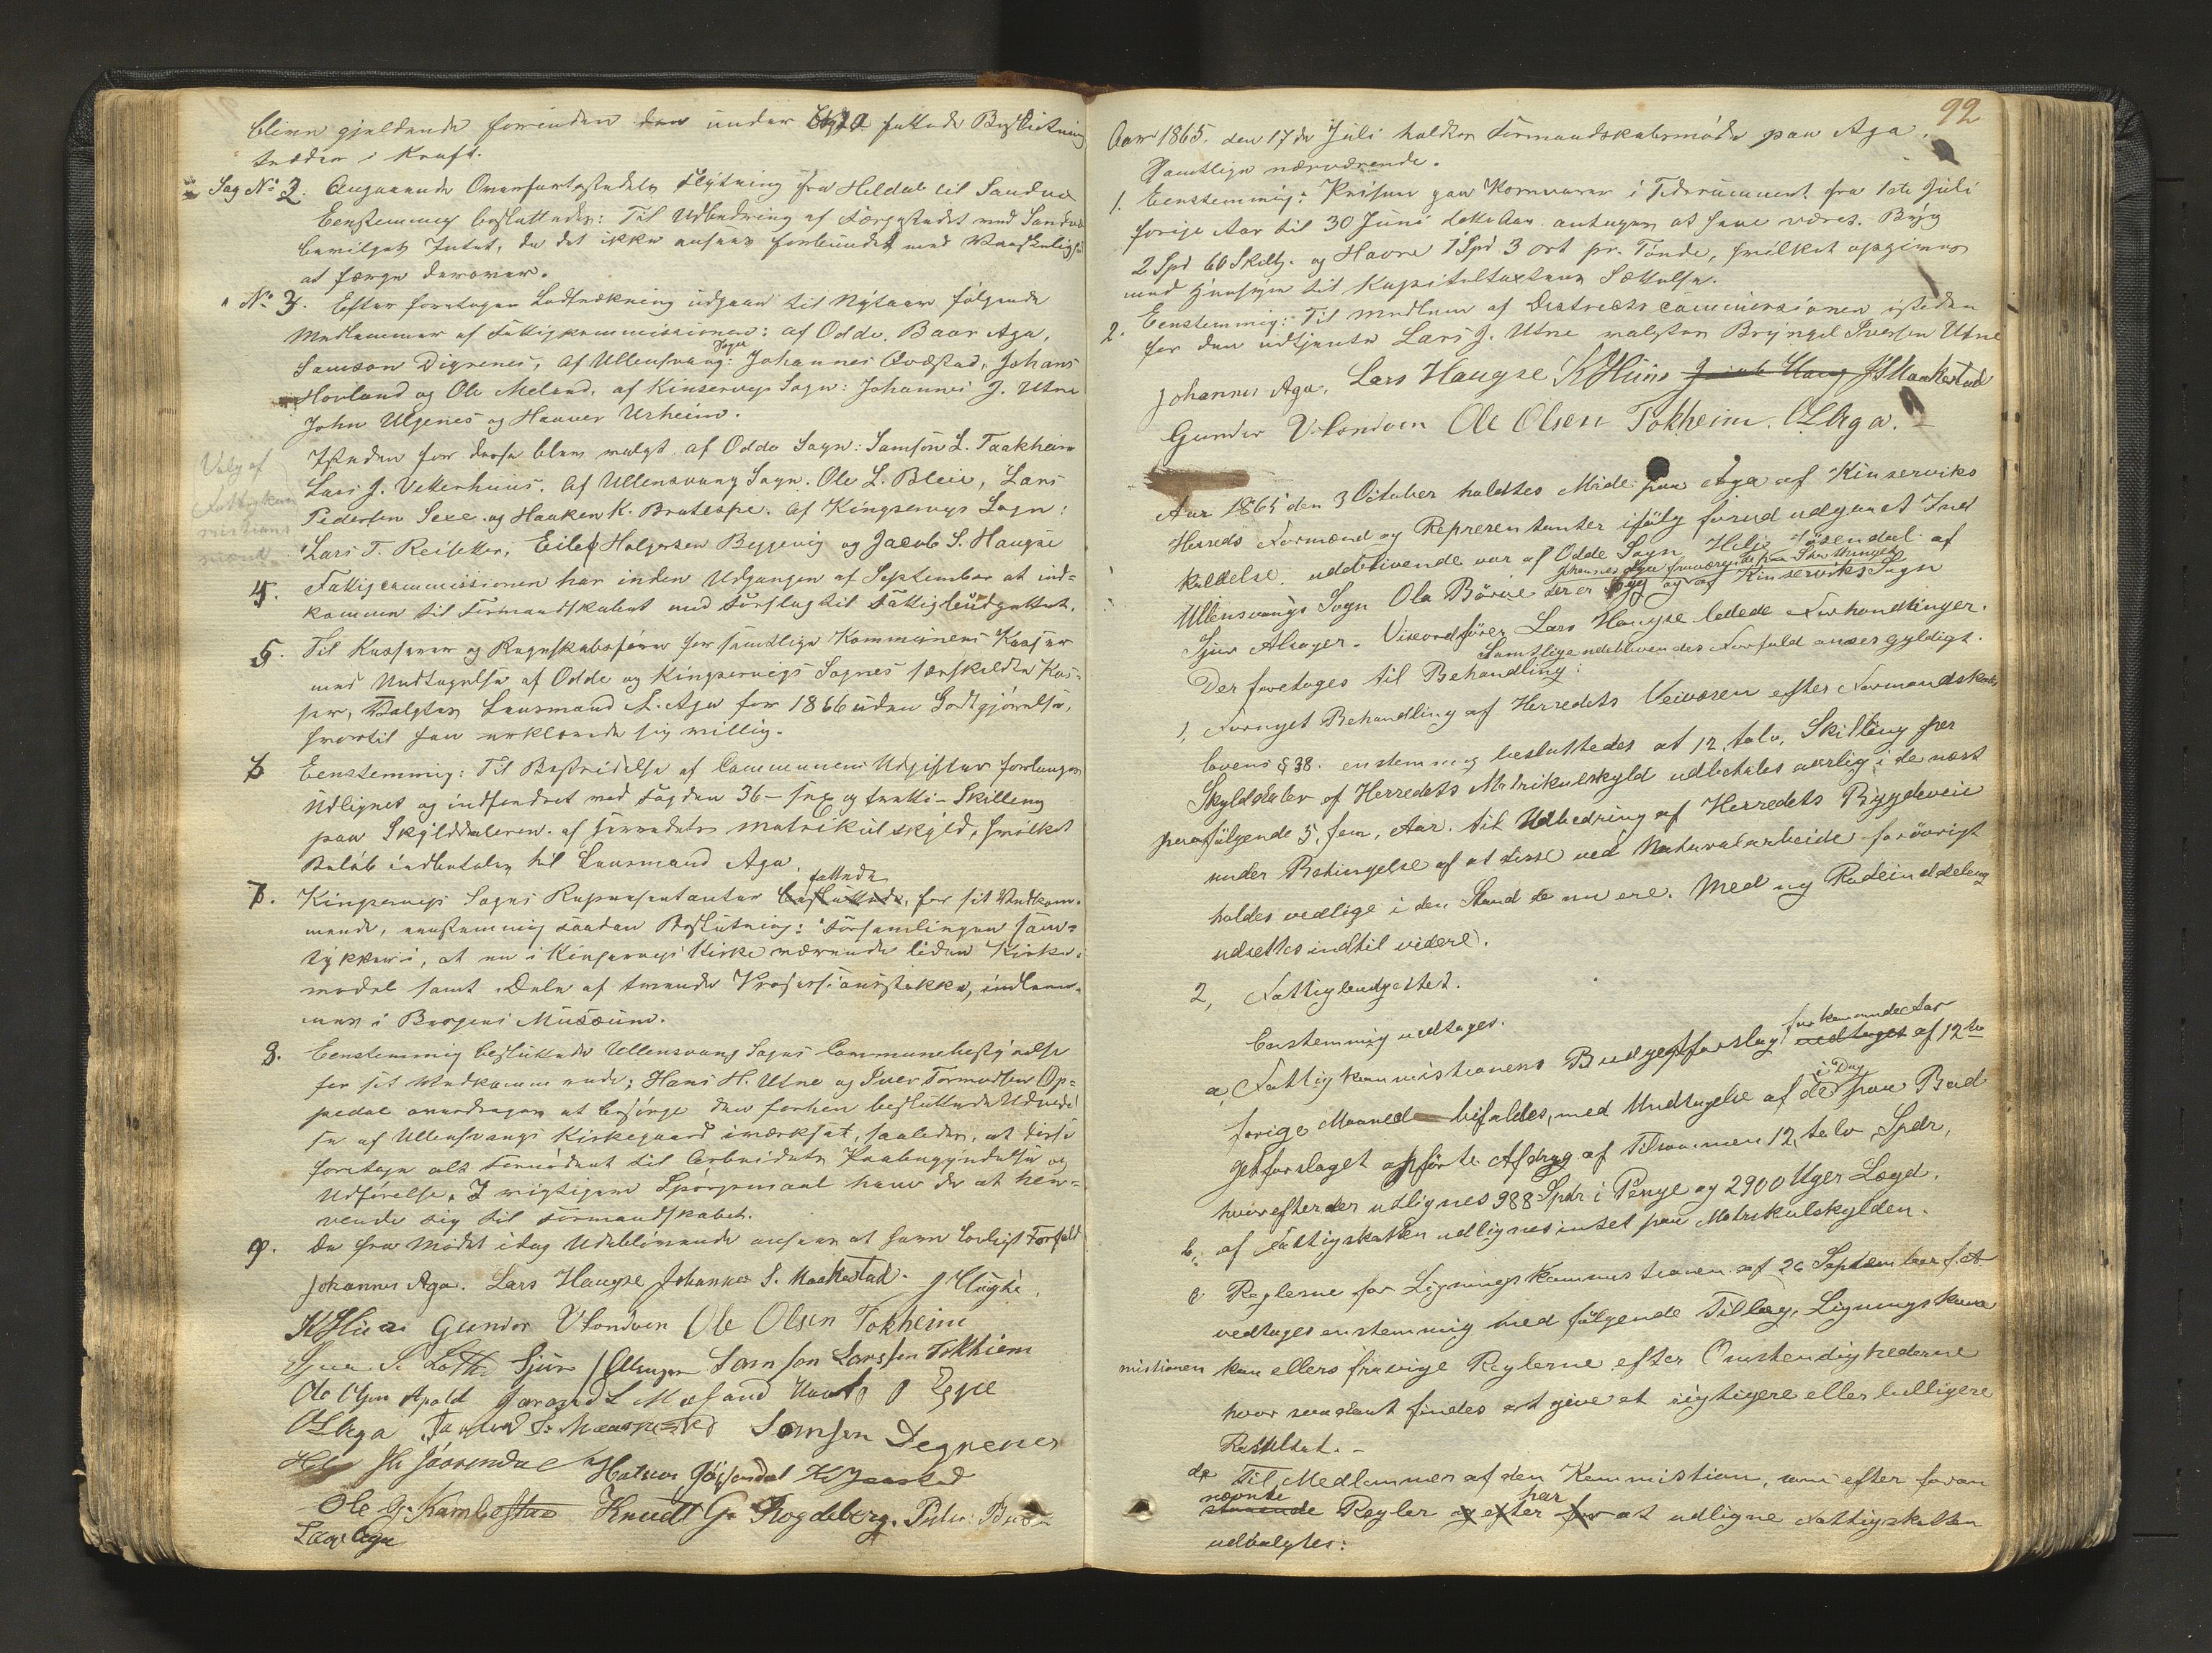 blive gjeldende forinden den under fattede Beslutning
træder i Kraft.
Sag No 2. Angaaende Overfartsstedets Flytning fra Hildal til Sandven
Eenstemmig besluttedes: Til Udbedring af Færgestedet ved Sandven
bevilges Intet, da det ikke ansees forbundet med Vanskelighed
at færge derover.
" No 3. Efter foretagen Lodtrækning udgaar til Nytaar følgende
Medlemmer af Fattigkommissionen: af Odde. Baar Aga,
Samson Digrenes, af Ullensvang: Johannes Qvæstad, Johans
Hovland og Ole Meland, af Kinservigs Sogn: Johannes J. Utne
John Ulgenes og Haaver Urheim.
Valg af
Fattigkom
missions
mænd
Isteden for disse blev valgt af Odde Sogn: Samson L. Taakheim
Lars J. Vetterhuus. Af Ullensvang Sogn. Ole L. Bleie, Lars
Pedersen Sexe og Haaken K. Bratespe. Af Kingservigs Sogn:
Lars T. Reisæter, Eilef Holjersen Beggevig og Jacob S. Haugse
4. Fattigcommissionen har inden Udgangen af September at ind-
komme til Formandskabet med Forslag til Fattigbudgettet.
5. Til Kasserer og Regnskabsfører for samtlige Kommunens Kasser
med Undtagelse af Odde og Kingservigs Sognes særskilte Kas-
ser, valgtes Lensmand L. Aga for 1866 uden Godtgjørelse,
hvortil han erklærede sig villig.
6 Eenstemmig: Til Bestridelse af Communens Udgifter forlanges
Udlignet og indfordret med Fogden 36 – sex og tretti – Skilling
paa Skylddaleren af Herredets matrikulskyld, hvilket
Beløb indbetales til Lensmand Aga.
7. Kingservigs Sogns Repræsentanter besluttede fattede, for sit Vedkom-
mende, eenstemmig saadan Beslutning: "Forsamlingen sam-
tykker i, at en i Kinservigs Kirke værende liden Kirke-
model samt Dele af tvende Processionsstokke, indlem-
mes i Bergens Musæum.
8. Eenstemmig besluttede Ullensvang Sogns Communebestyrelse
for sit Vedkommende: Hans H. Utne og Iver Tormodsen Op-
pedal overdrages at besørge den forhen besluttede Udvidel-
se af Ullensvangs Kirkegaard iværksat, saaledes, at disse
foretage alt Fornødent til Arbeidets Paabegyndelse og
Udførelse. I vigtigere Spørgsmaal have de at hen-
vende sig til Formandskabet.
9. De fra Mødet idag Udeblivende ansees at have Lovligt Forfald
Johannes Aga. Lars Haugse Johannes S. Maakestad.
K Huus Gunder V Sandven Ole Olsen Tokheim
Sjur Samson Larssen Tokheim
Ole Olsen Apold
O L Aga Samson Degrenes
Ole G. Kambestad Knudt G. Kogdeberg.
Lars Aga
92
Aar 1865. den 17de Juli holdtes Formandskabsmøde paa Aga.
Samtlige nærværende.
1. Eenstemmig: Prisene paa Kornvarer i Tidsrummet fra 1ste Juli
forige Aar til 30 Juni dette Aar antages at have været. Byg
2 Spd 60 Skill. og Havre 1 Spd 3 ort pr. Tønde, hvilket opgives
med Hensyn til Kapitelstaxtens Sættelse.
2. Eenstemmig: Til medlem af Districtscommissionen isteden
for den udtjente Lars J. Utne valgtes Bryngel Iversen Utne
Johannes Aga. Lars Haugse K Huus J S Maakestad
Gunder V. Sandven Ole Olsen Tokheim. O L Aga.
Aar 1865 den 3 October holdtes Møde paa Aga af Kinserviks
Herreds Formænd og Representanter ifølg forud udgaaet Ind
kaldelse. uddblivende var af Odde Sogn Helje Jösendal af
Ullensvangs Sogn Ola Börve der er syg og af Kinserviks Sogn
Sjur Alsager. Viceordfører Lars Haugse ledede Forhandlinger.
Samtlige udeblivendes Forfald ansees gyldigt.
Der foretoges til Behandling:
1, Fornyet Behandling af Herredets Veivæsen efter Formandskabs
lovens § 38. enstemmig besluttedes at 12, tolv, Skilling per
Skyldaler af Herredets Matrikulskyld udbetales aarlig i de næst
paafølgende 5, fem, Aar. til Udbedring af Herredets Bygdeveie
under Betingelse af at disse ved Naturalarbeide forövrigt
holdes vedlige i den Stand de nu ere. Med ny Rodeinddeling
udsettes indtil videre.
2, Fattigbudgettet.
Enstemmig vedtages.
a, Fattigkommistionens Budgetforslag for kommende Aar vedtaget af 12te
forige Maaned bifaldes, med Undtagelse af det i Dag paa Bud
getforslaget opførte Afdrag af Tilsammen 12, tolv, Spdr,
hvorefter der udlignes 988 Spdr i Penge og 2900 Uger Lægd.
b, af Fattigskatten udlignes intet paa Matrikulskylden.
c Reglerne for Ligningskommistionen af 26 September f. A
vedtages enstemmig med følgende Tillæg, Ligningskom
mistionen kan ellers fravige Reglerne efter Omstendighederne
hvor saadant findes at give et rigtigere eller billigere
Resultat. –
d, Til Medlemmer af den Kommistion, som efter foran
staaende nævnte Regler og efter har for at udligne Fattigskatten
udvalgtes: